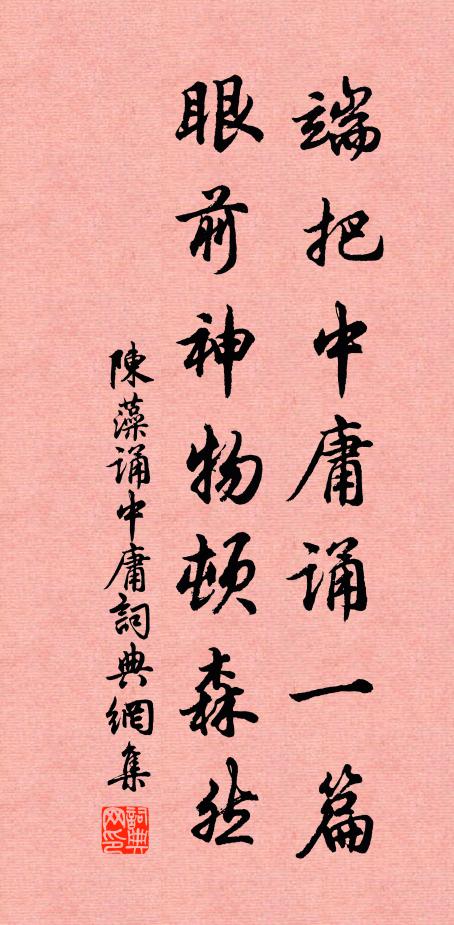 端把中庸诵一篇
眼前神物顿森然
陳藻诵中庸詞典網集
詞典网印